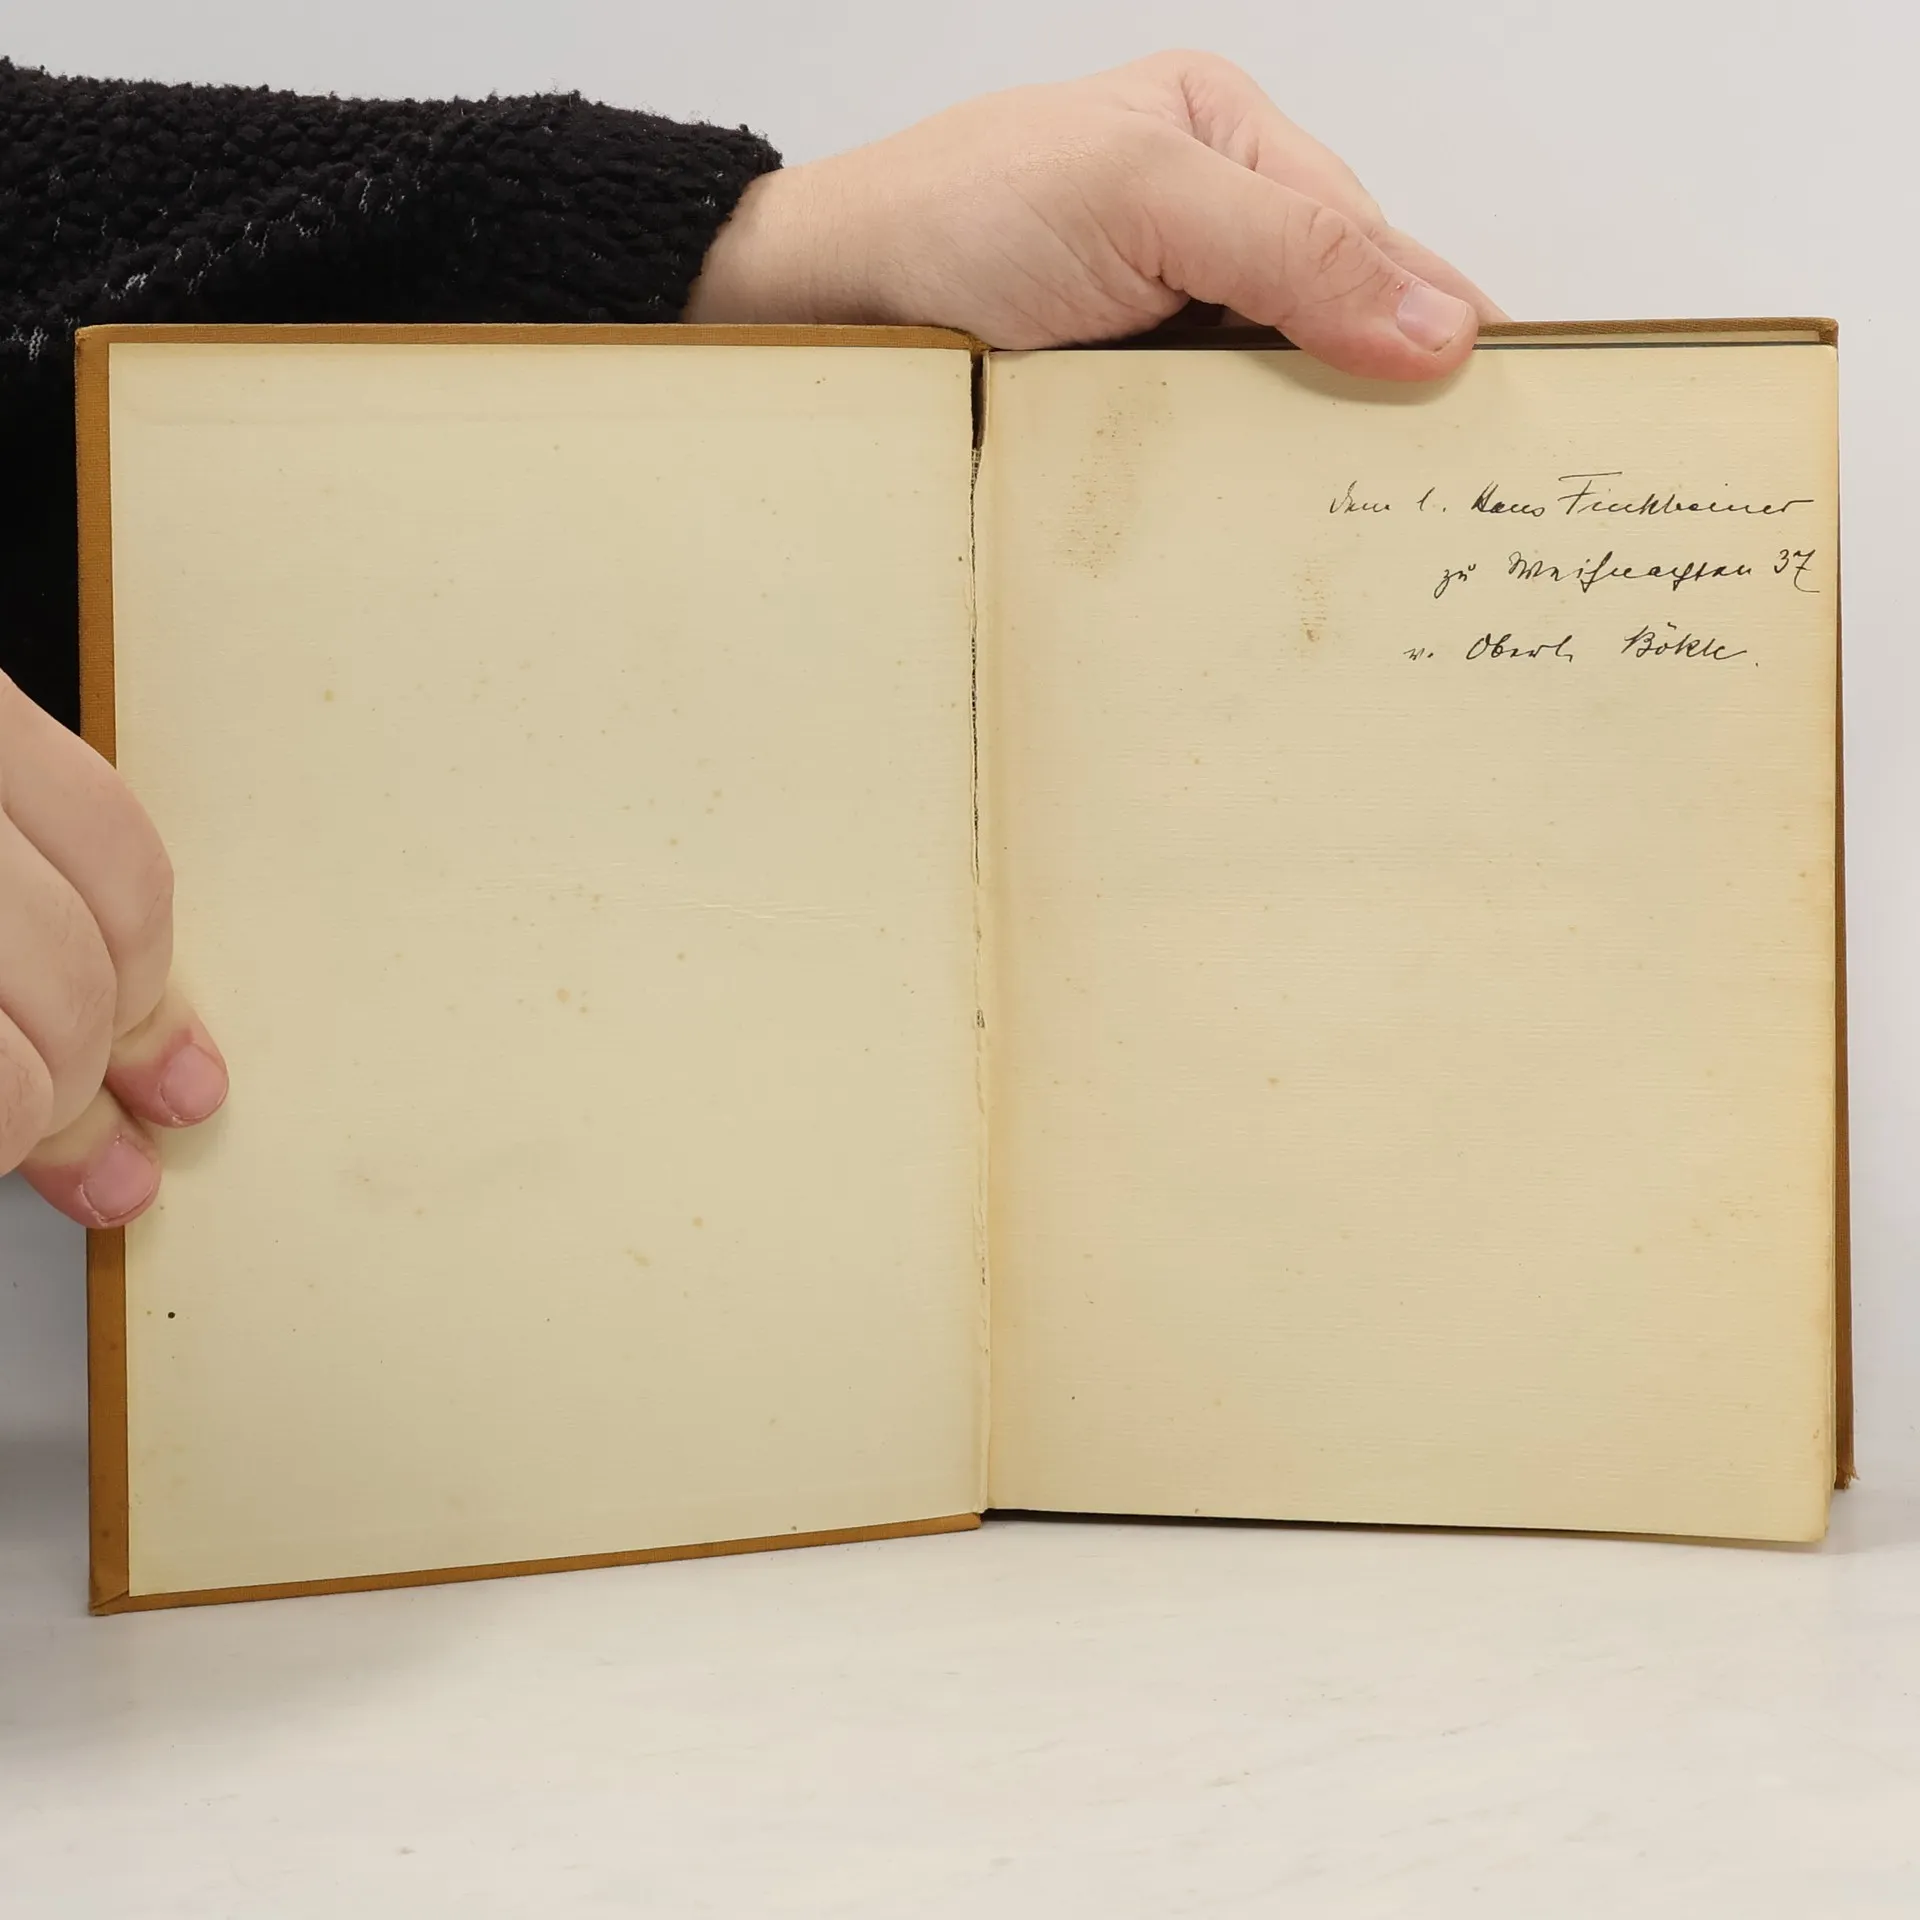 Dem l. Hans Finkbeiner
zu Weihnachten 37
v. Oberl. Bökle.